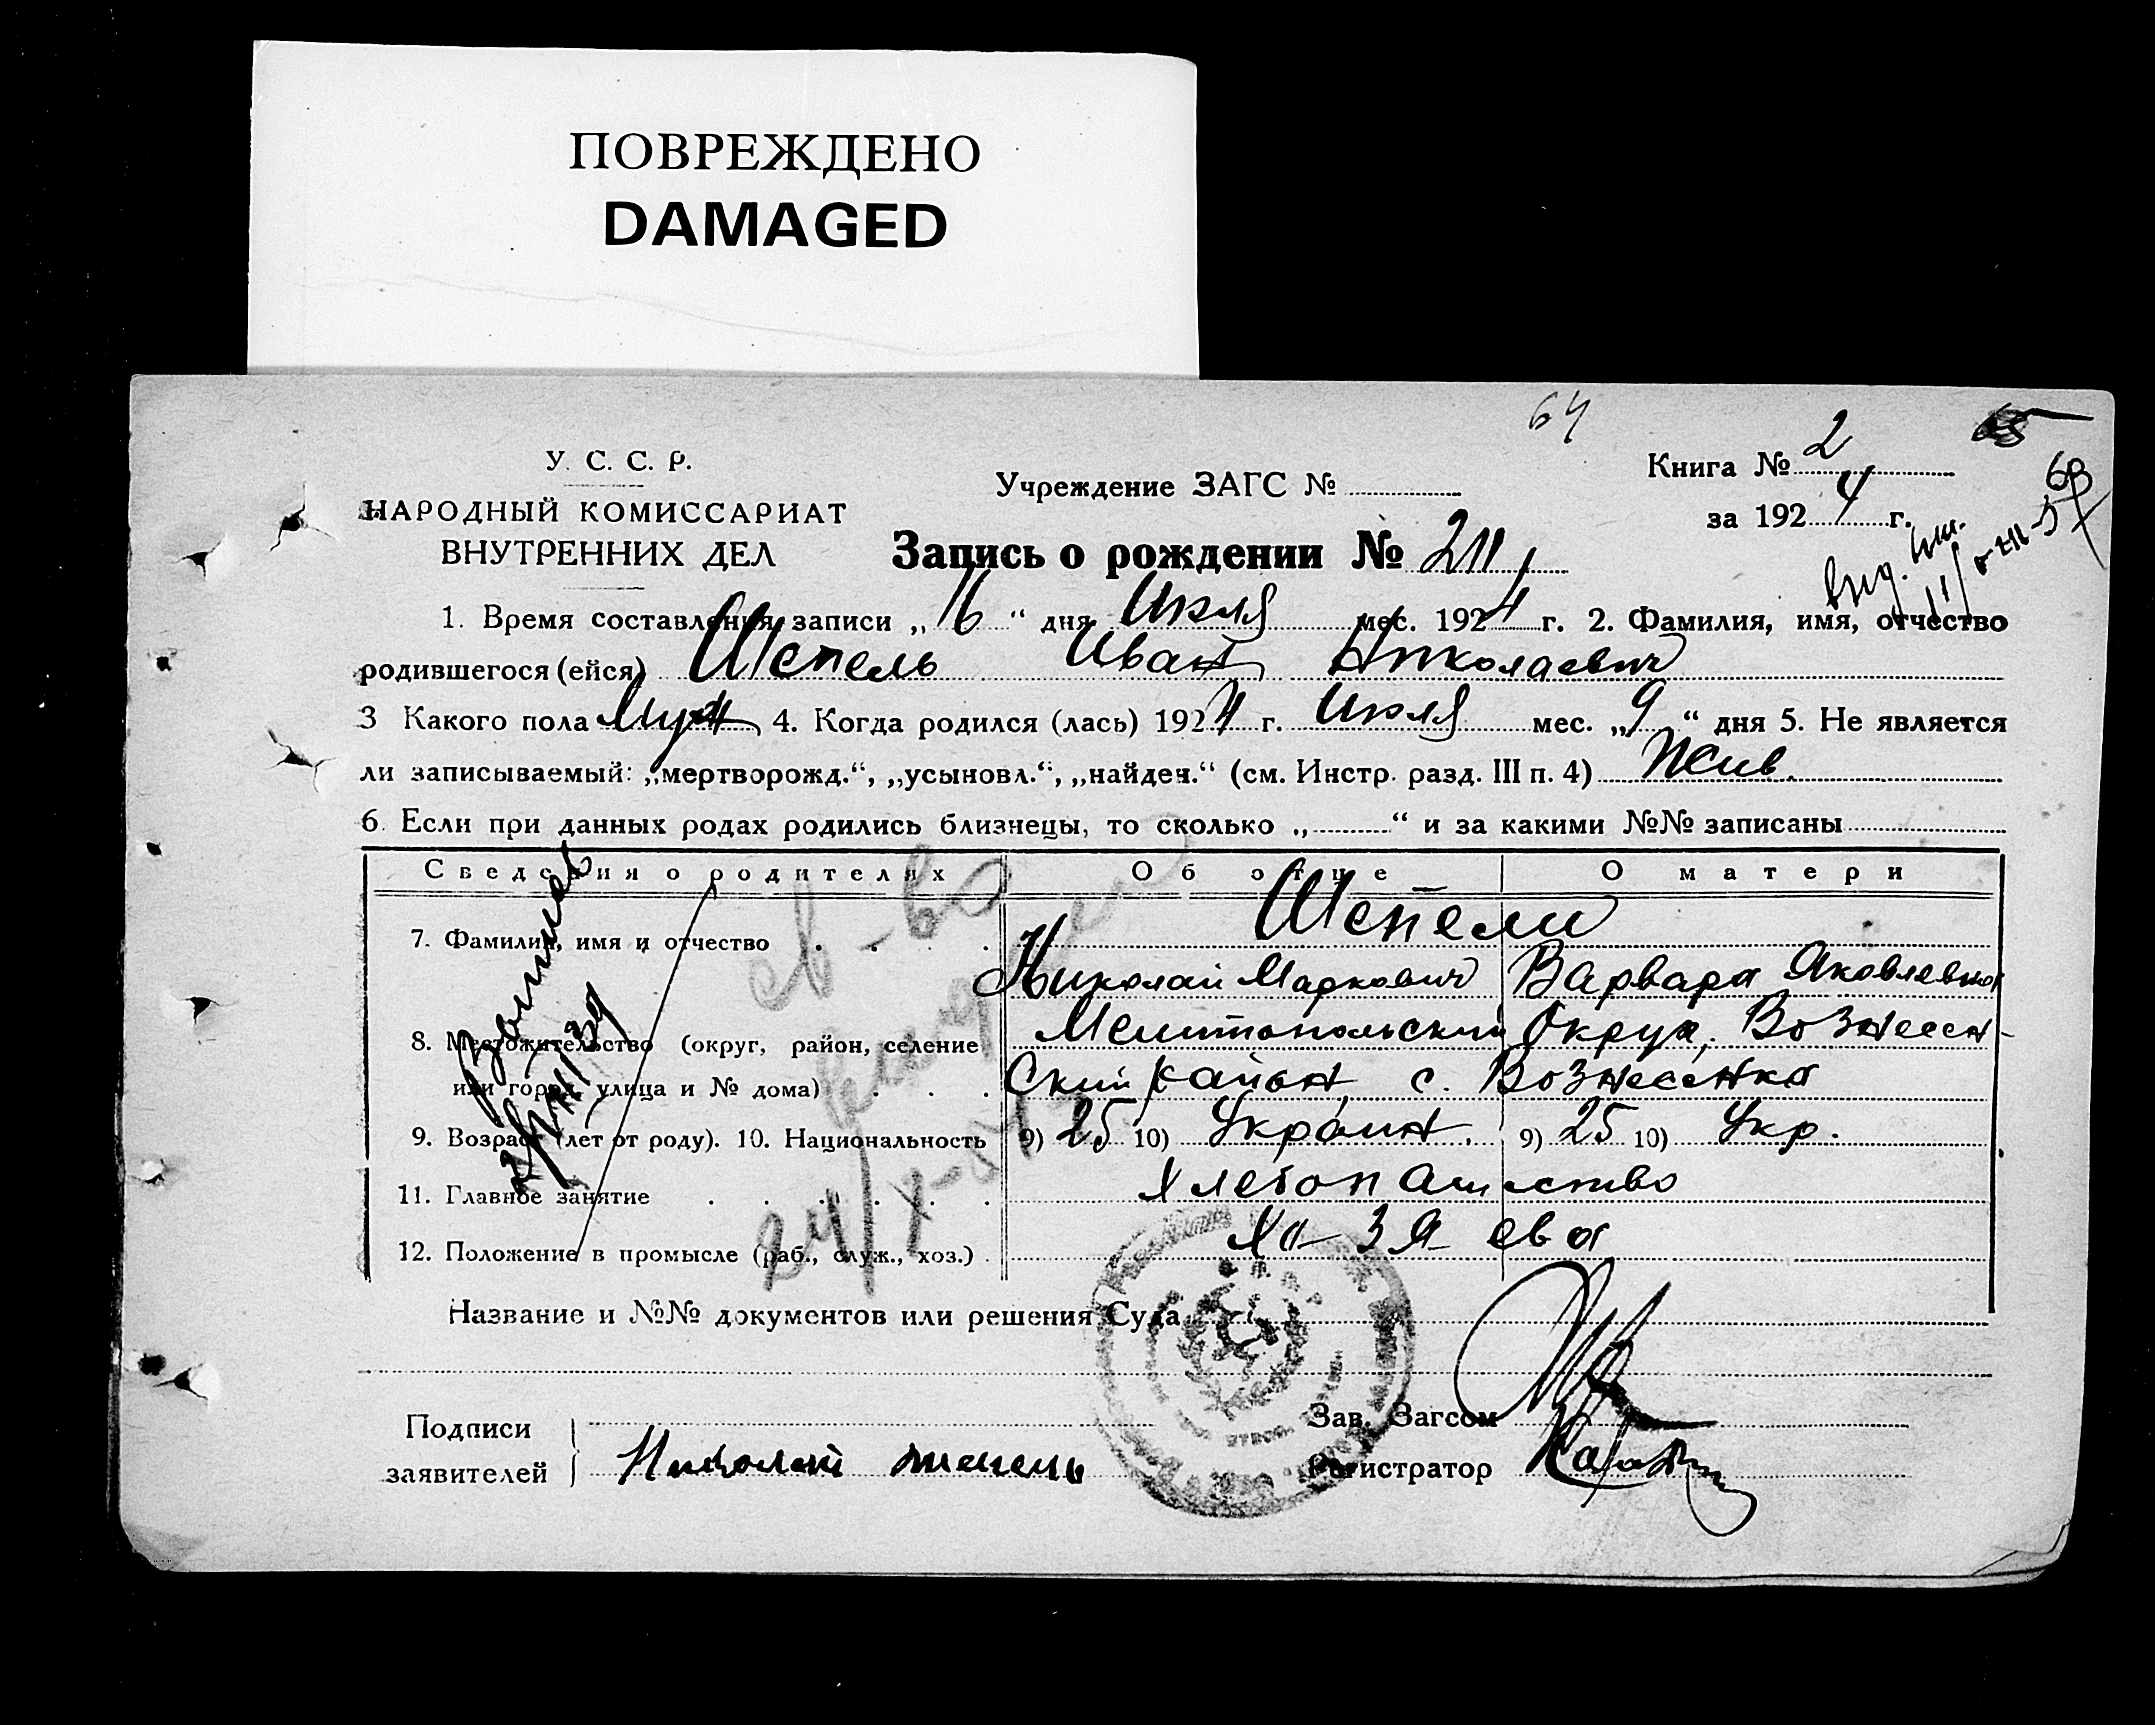 ПОВРЕЖДЕНО
DAMAGED
64
У. С. С. Р.
НАРОДНЫЙ КОМИССАРИАТ
ВНУТРЕННИХ ДЕЛ
Учреждение ЗАГС №
Книга № 2
за 1924 г.
Запись о рождении № 211
1. Время составления записи „16“ дня Июля мес. 1924 г. 2. Фамилия, имя, отчество
родившегося (ейся) Шепель Иван Николаевич
3 Какого пола Муж 4. Когда родился (лась) 1924 г. Июля мес. „9“ дня 5. Не является
ли записываемый: „мертворожд.“, „усыновл.“, „найден.“ (см. Инстр. разд. III п. 4) Жив.
6. Если при данных родах родились близнецы, то сколько „ “ и за какими №№ записаны
Сведения о родителях Об отце О матери
7. Фамилия, имя и отчество Шепели
Николай Маркович Варвара Яковлевна
8. Местожительство (округ, район, селение Мелитопольский Округ, Вознесен-
или город, улица и № дома) ский район, с. Вознесенка
9. Возраст (лет от роду). 10. Национальность 9) 25 10) Украин. 9) 25 10) Укр.
11. Главное занятие Хлебопашество
12. Положение в промысле (раб., служ., хоз.) Хозяева
св-во
Название и №№ документов или решения Суда
Подписи
заявителей Николай Шепель
Зав. Загсом
Регистратор